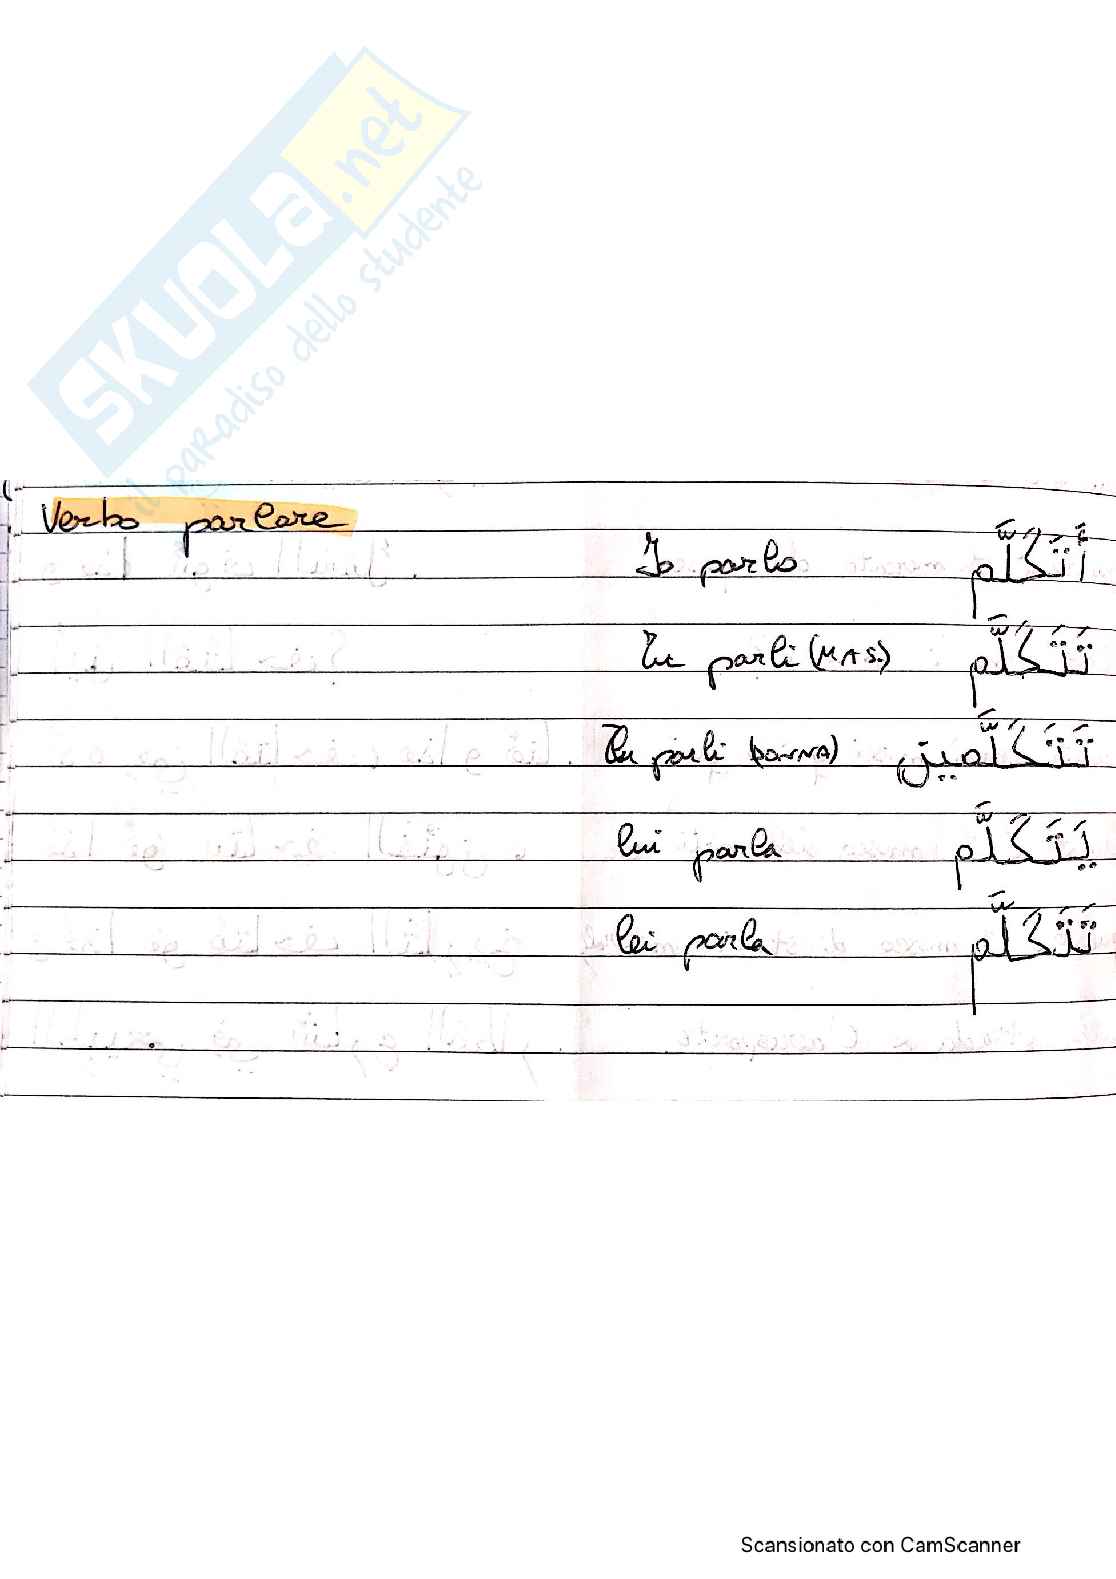 SKUOLA.net
il paradiso dello studente
Verbo parlare
Io parlo أَتَكَلَّم
Tu parli (MAS.) تَتَكَلَّم
Tu parli (DONNA) تَتَكَلَّمين
lui parla يَتَكَلَّم
lei parla تَتَكَلَّم
Scansionato con CamScanner